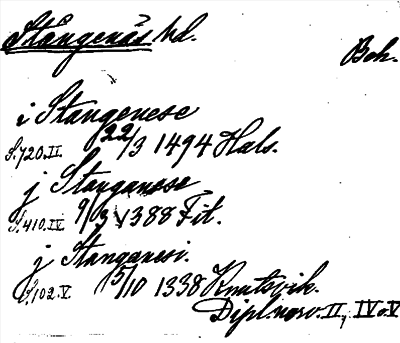 Stångenäs hd.
Boh.
i Stangenese
S.720.II. 22/3 1494 Hals.
j Stanganesse
S.410.IV 9/3 1388 Fit.
j Stanganesi.
S.102.V. 15/10 1338 Knutsvik.
Dipl. norv. II, IV o. V